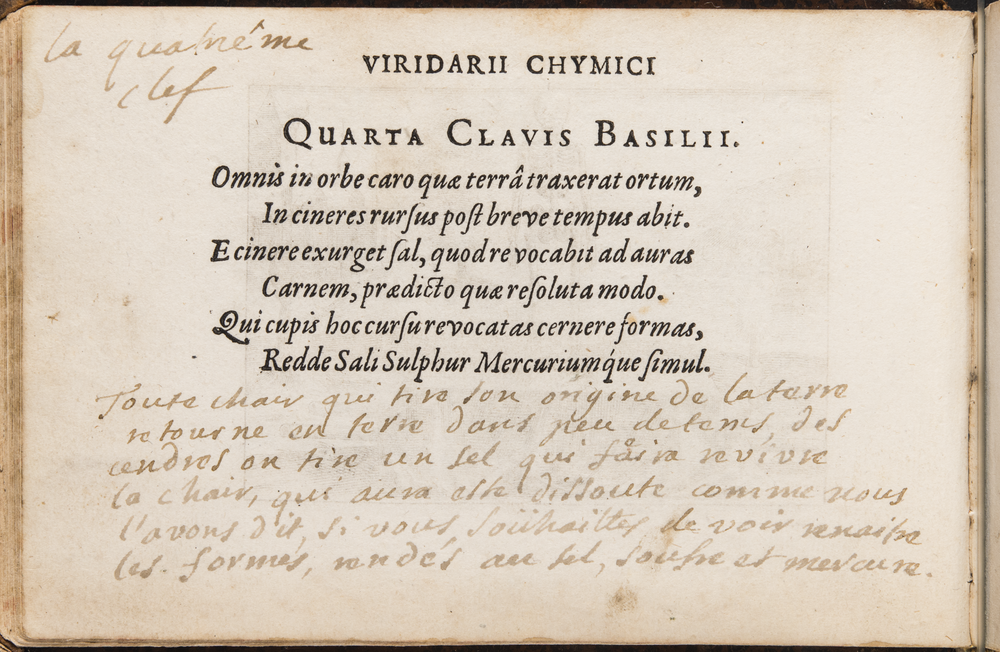 la quatriême
clef
VIRIDARII CHYMICI
QUARTA CLAVIS BASILII.
Omnis in orbe caro quæ terrâ traxerat ortum,
In cineres rurſus poſt breve tempus abit.
E cinere exurget ſal, quod revocabit ad auras
Carnem, prædicto quæ reſoluta modo.
Qui cupis hoc curſu revocatas cernere formas,
Redde Sali Sulphur Mercuriumq́ue ſimul.
Toute chair qui tire son origine de la terre
retourne en terre dans peu de tems, des
cendres on tire un sel qui faira revivre
la chair, qui aura esté dissoute comme nous
l'avons dit, si vous souhaittes de voir renaitre
les formes, rendés au sel, soufre et mercure.